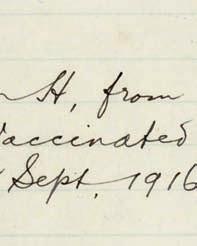 H, from
Vaccinated
Sept. 1916